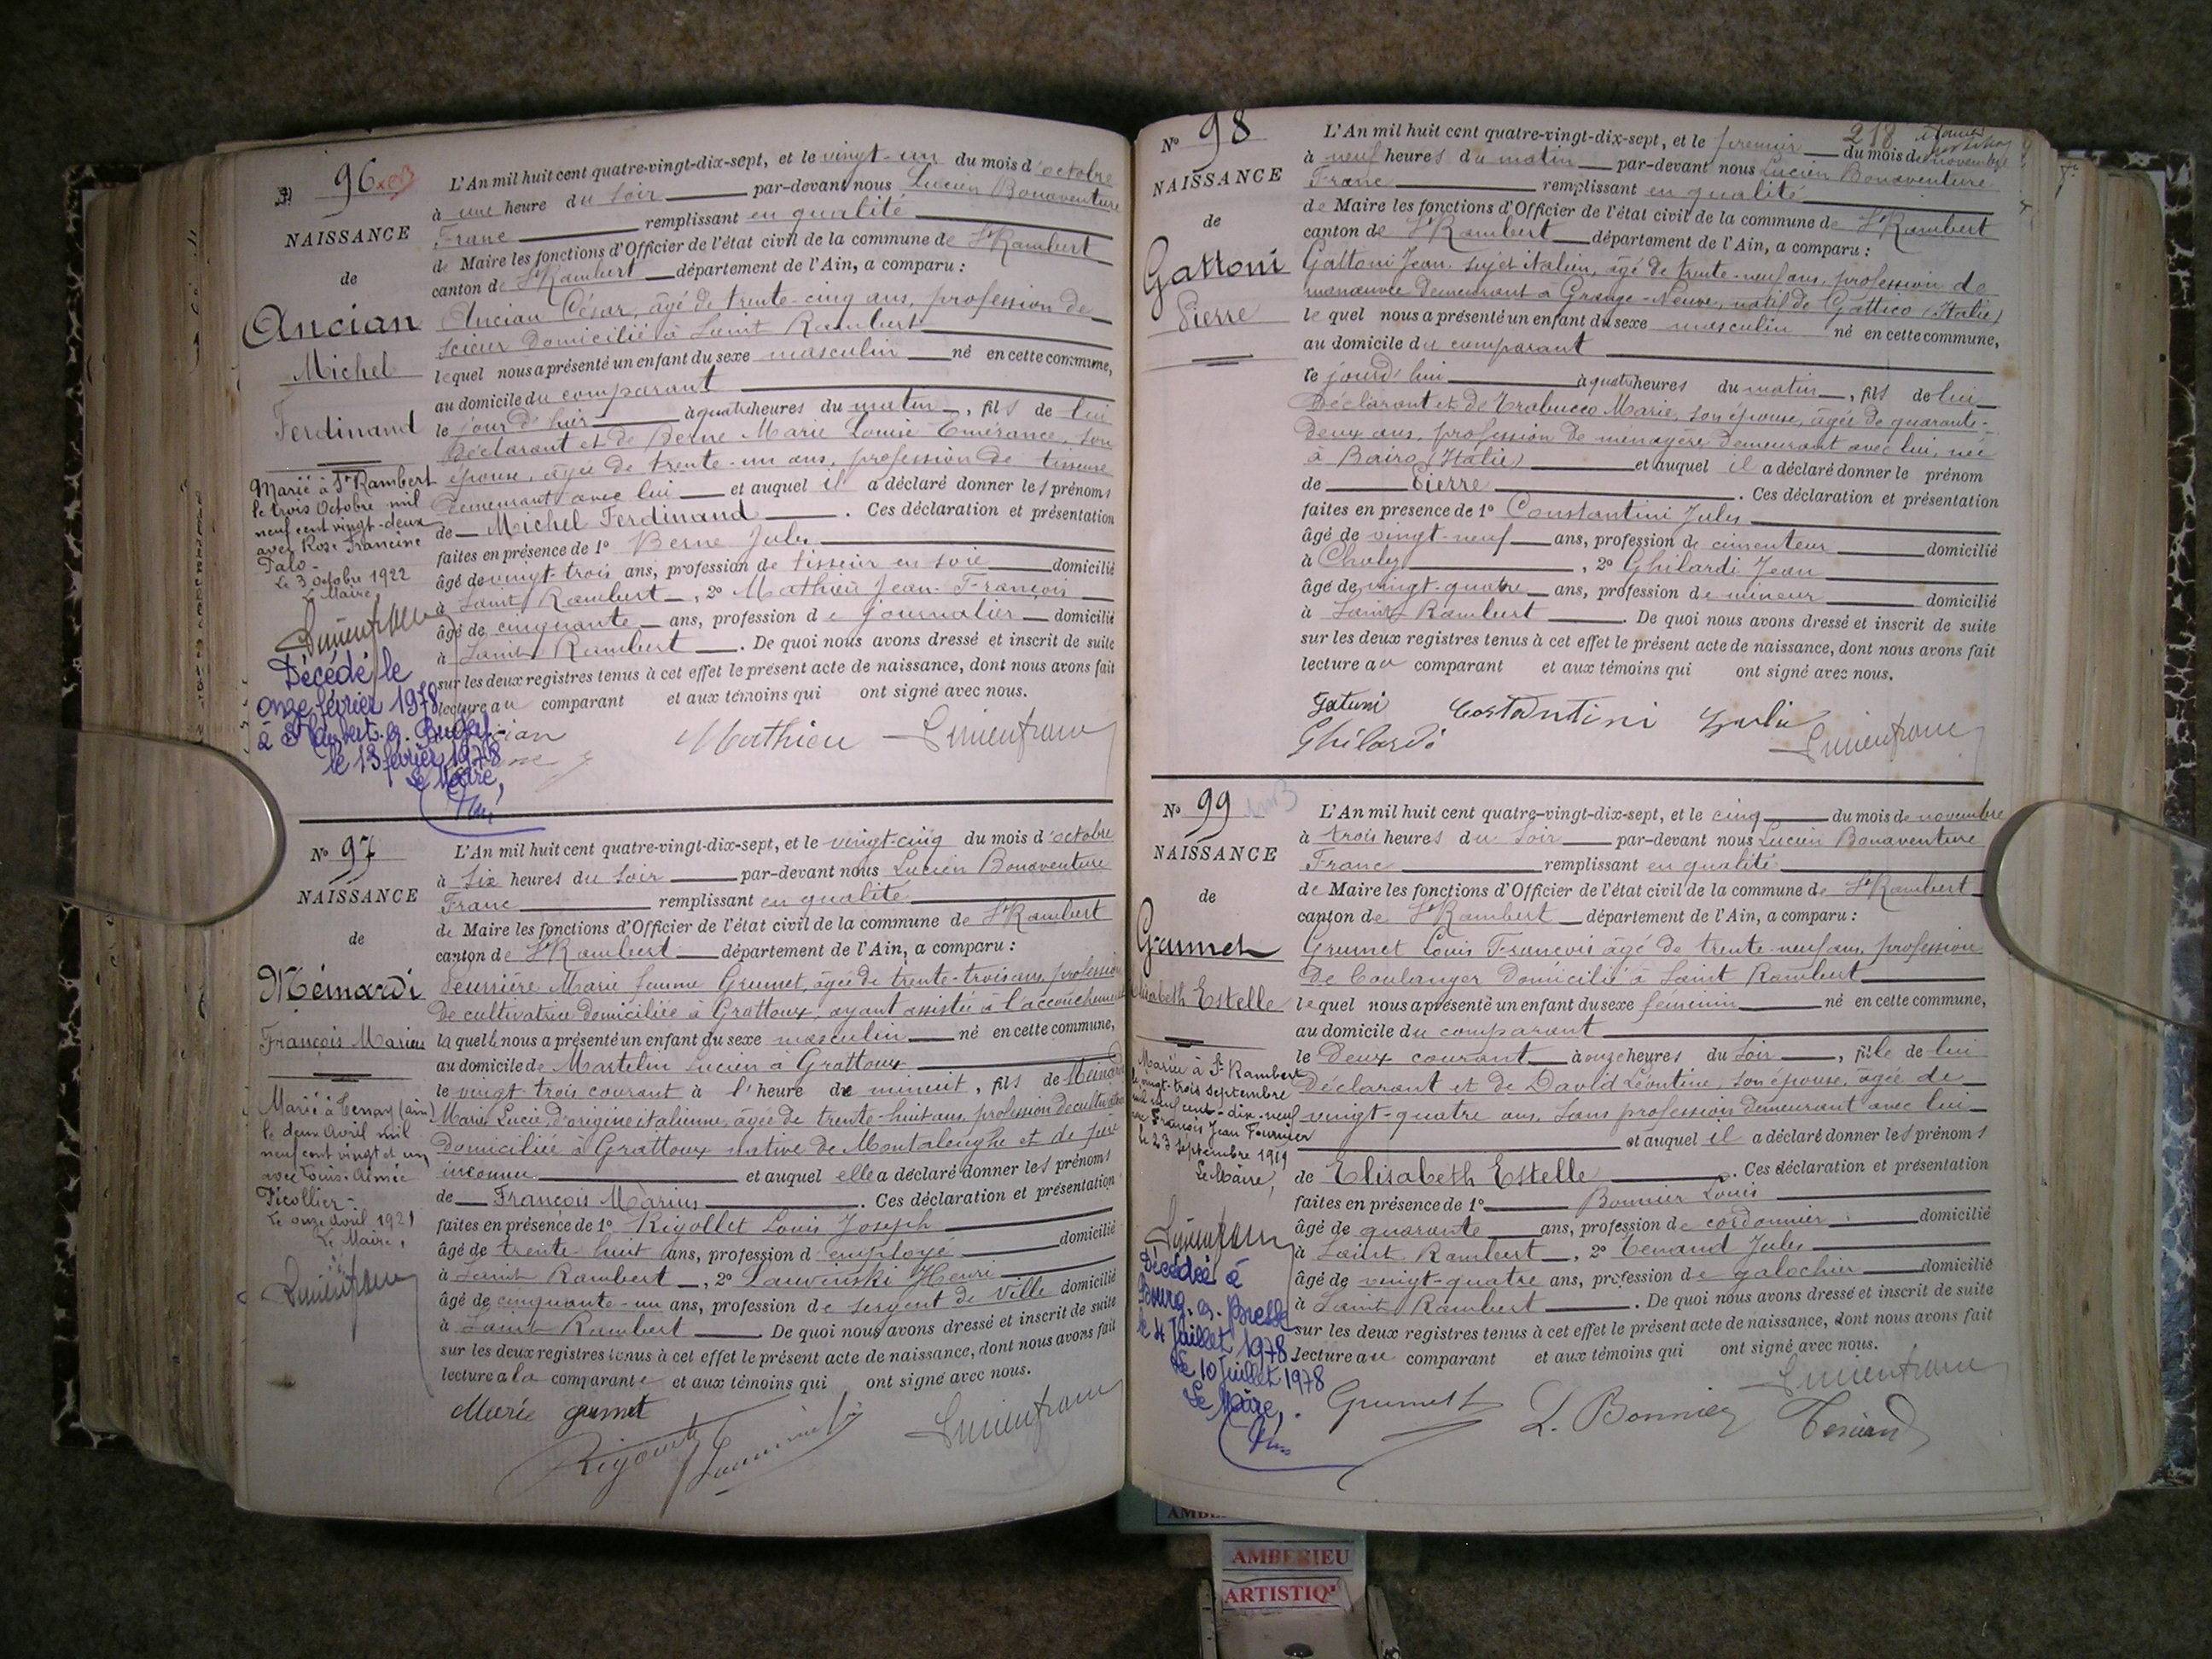 N° 96
NAISSANCE
de
Ancian
Michel
Ferdinand
Marié à St Rambert
le trois Octobre mil
neuf cent vingt-deux
avec Rose Francine
Palo
Le 3 octobre 1922
Le Maire,
Décédé le
onze février 1978
à St Rambert-en-Bugey
le 13 février 1978
Le Maire,
L'An mil huit cent quatre-vingt-dix-sept, et le vingt-un du mois d'octobre
à une heure du soir par-devant nous Lucien Bonaventure
Franc remplissant en qualité
de Maire les fonctions d'Officier de l'état civil de la commune de St Rambert
canton de St Rambert département de l'Ain, a comparu :
Ancian César, âgé de trente-cinq ans, profession de
scieur domicilié à Saint Rambert
lequel nous a présenté un enfant du sexe masculin né en cette commune,
au domicile du comparant
le jour d'hier à quatre heures du matin, fils de lui
déclarant et de Berne Marie Louise Emérance, son
épouse, âgée de trente-un ans, profession de tisseuse
demeurant avec lui et auquel il a déclaré donner les prénoms
de Michel Ferdinand. Ces déclaration et présentation
faites en présence de 1° Berne Jules
âgé de vingt-trois ans, profession de tisseur en soie domicilié
à Saint Rambert, 2° Mathieu Jean-François
âgé de cinquante ans, profession de journalier domicilié
à Saint Rambert. De quoi nous avons dressé et inscrit de suite
sur les deux registres tenus à cet effet le présent acte de naissance, dont nous avons fait
lecture au comparant et aux témoins qui ont signé avec nous.
Mathieu Lucien franc
N° 97
NAISSANCE
de
Meinardi
François Marius
Marié à Tenay (ain)
le deux Avril mil
neuf cent vingt et un
avec Louise Aimée
Picollier
Le onze avril 1921
Le Maire,
Lucien franc
L'An mil huit cent quatre-vingt-dix-sept, et le vingt-cinq du mois d'octobre
à six heures du soir par-devant nous Lucien Bonaventure
Franc remplissant en qualité
de Maire les fonctions d'Officier de l'état civil de la commune de St Rambert
canton de St Rambert département de l'Ain, a comparu :
Marie femme Grumet, âgée de trente-trois ans, profession
de cultivatrice domiciliée à Grattoux, ayant assistée à l'accouchement
laquelle nous a présenté un enfant du sexe masculin né en cette commune,
au domicile de Martelin Lucien à Grattoux
le vingt-trois courant à l'heure de minuit, fils de Meinardi
Marie Lucie, d'origine italienne, âgée de trente-huit ans, profession de cultivatrice
domiciliée à Grattoux native de Montalenghe et de père
inconnu et auquel elle a déclaré donner les prénoms
de François Marius. Ces déclaration et présentation
faites en présence de 1° Rigollet Louis Joseph
âgé de trente-huit ans, profession d'employé domicilié
à Saint Rambert, 2° Lauvinski Henri
âgé de cinquante-un ans, profession de sergent de ville domicilié
à Saint Rambert. De quoi nous avons dressé et inscrit de suite
sur les deux registres tenus à cet effet le présent acte de naissance, dont nous avons fait
lecture à la comparante et aux témoins qui ont signé avec nous.
Marie grumet
Lucien franc
218
N° 98
NAISSANCE
de
Gattoni
Pierre
L'An mil huit cent quatre-vingt-dix-sept, et le premier du mois de novembre
à neuf heures du matin par-devant nous Lucien Bonaventure
Franc remplissant en qualité
de Maire les fonctions d'Officier de l'état civil de la commune de St Rambert
canton de St Rambert département de l'Ain, a comparu :
Gattoni Jean, sujet italien, âgé de trente-neuf ans, profession de
manœuvre demeurant à Grange-Neuve, natif de Gattico (Italie)
lequel nous a présenté un enfant du sexe masculin né en cette commune,
au domicile du comparant
le jourd'hui à quatre heures du matin, fils de lui
déclarant et de Trabucco Marie, son épouse, âgée de quarante-
deux ans, profession de ménagère demeurant avec lui, née
à Bairo (Italie) et auquel il a déclaré donner le prénom
de Pierre. Ces déclaration et présentation
faites en présence de 1° Constantini Jules
âgé de vingt-neuf ans, profession de cimenteur domicilié
à Chaley, 2° Ghilardi Jean
âgé de vingt-quatre ans, profession de mineur domicilié
à Saint Rambert. De quoi nous avons dressé et inscrit de suite
sur les deux registres tenus à cet effet le présent acte de naissance, dont nous avons fait
lecture au comparant et aux témoins qui ont signé avec nous.
Gatuni Costantini
Ghilardi Lucien franc
N° 99
NAISSANCE
de
Grumet
Elisabeth Estelle
Mariée à St Rambert
le vingt-trois septembre
mil neuf cent-dix-neuf
avec François Jean Fournier
le 23 septembre 1919
Le Maire,
Lucien franc
Décédée à
Bourg-en-Bresse
le 4 Juillet 1978
Le 10 Juillet 1978
Le Maire,
L'An mil huit cent quatre-vingt-dix-sept, et le cinq du mois de novembre
à trois heures du soir par-devant nous Lucien Bonaventure
Franc remplissant en qualité
de Maire les fonctions d'Officier de l'état civil de la commune de St Rambert
canton de St Rambert département de l'Ain, a comparu :
Grumet Louis François âgé de trente-neuf ans, profession
de boulanger domicilié à Saint Rambert
lequel nous a présenté un enfant du sexe féminin né en cette commune,
au domicile du comparant
le deux courant à onze heures du soir, fille de lui
déclarant et de David Léontine, son épouse, âgée de
vingt-quatre ans, sans profession demeurant avec lui
et auquel il a déclaré donner les prénoms
de Elisabeth Estelle. Ces déclaration et présentation
faites en présence de 1° Bonnier Louis
âgé de quarante ans, profession de cordonnier domicilié
à Saint Rambert, 2° Tenand Jules
âgé de vingt-quatre ans, profession de galochier domicilié
à Saint Rambert. De quoi nous avons dressé et inscrit de suite
sur les deux registres tenus à cet effet le présent acte de naissance, dont nous avons fait
lecture au comparant et aux témoins qui ont signé avec nous.
Lucien franc
Grumet L. Bonnier Tenand
AMBERIEU
ARTISTIQ